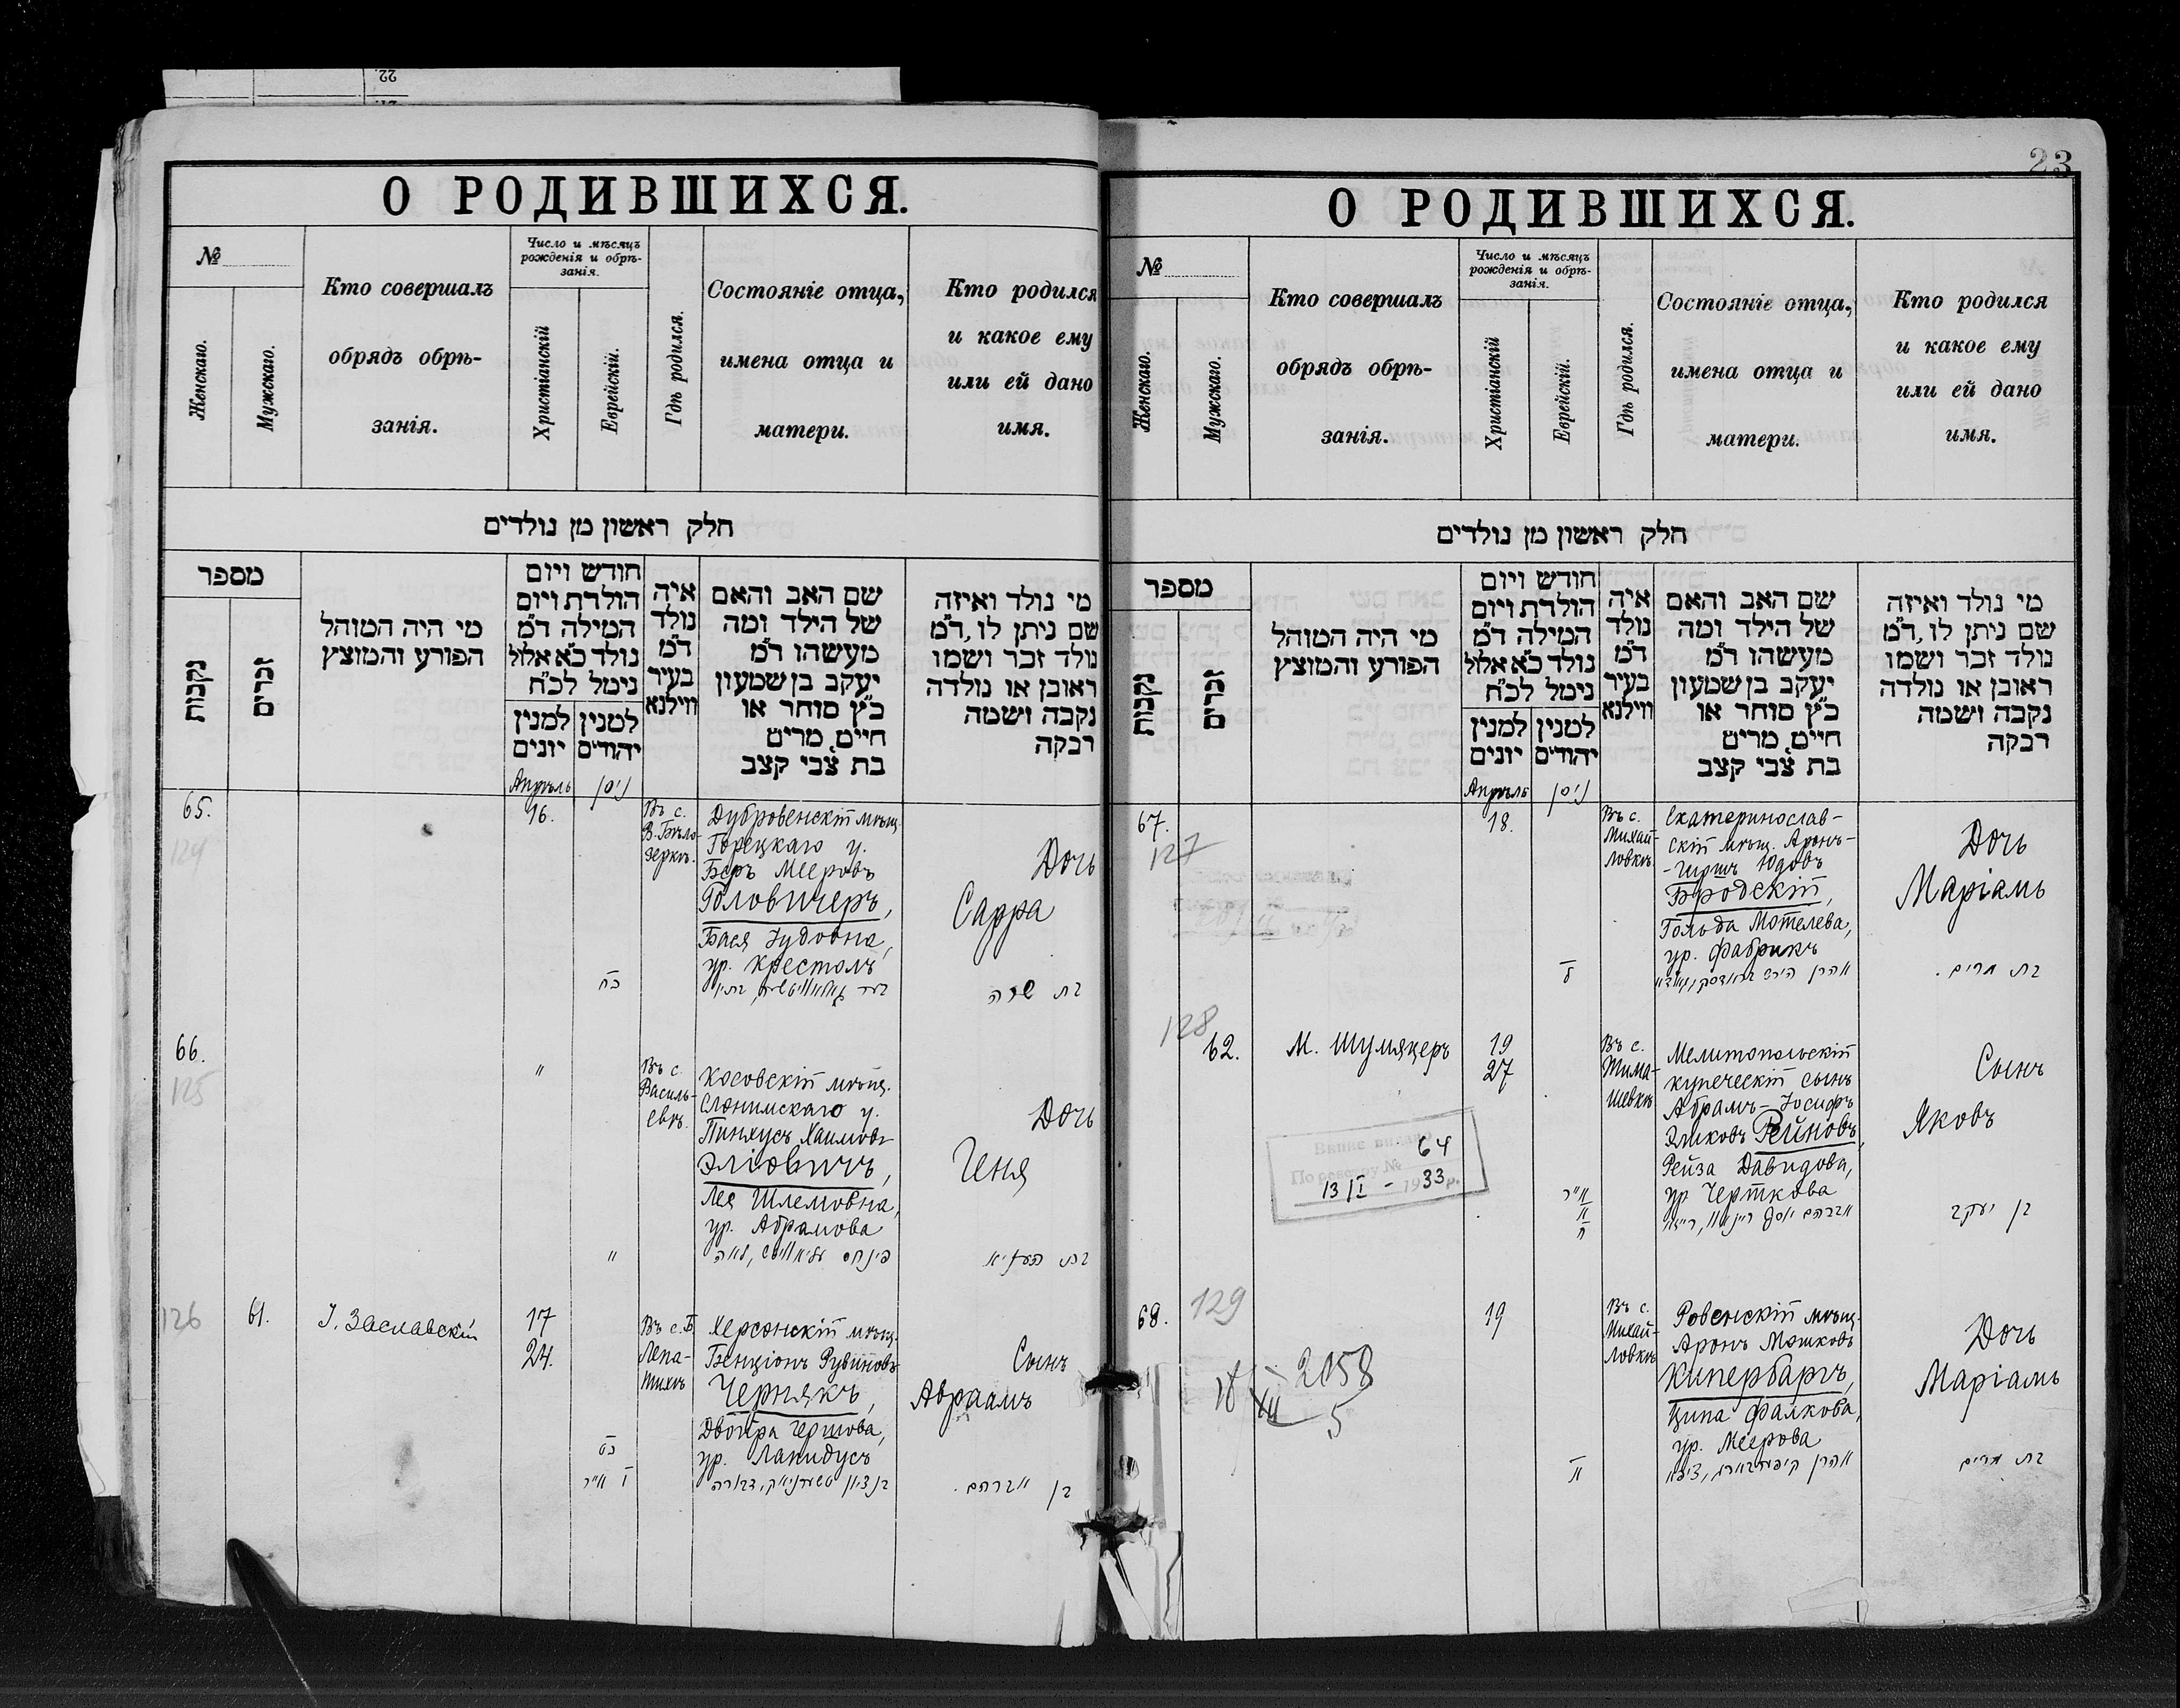 22.
О РОДИВШИХСЯ.
№
Женскаго.
Мужскаго.
Кто совершалъ
обрядъ обрѣ-
занія.
Число и мѣсяцъ
рожденія и обрѣ-
занія.
Христіанскій
Еврейскій.
Гдѣ родился.
Состояніе отца,
имена отца и
матери.
Кто родился
и какое ему
или ей дано
имя.
חלק ראשון מן נולדים
מספר
נקבות
זכרים
מי היה המוהל
הפורע והמוצץ
חודש ויום
הולדת ויום
המילה ד"מ
נולד כ"א אלול
נימל לכ"ח
למנין
יונים
למנין
יהודים
איה
נולד
ד"מ
בעיר
ווילנא
שם האב והאם
של הילד ומה
מעשהו ד"מ
יעקב בן שמעון
כ"ץ סוחר או
חיים, מרים
בת צבי קצב
מי נולד ואיזה
שם ניתן לו, ד"מ
נולד זכר ושמו
ראובן או נולדה
נקבה ושמה
רבקה
Апрѣль
ניסן
65.
124
16.
Въ с.
В. Бѣло-
зеркѣ.
Дубровенскій мѣщ.
Горецкаго у.
Беръ Мееровъ
Головчеръ,
Бася Іудовна,
ур. Крестолъ
כח
Дочь
Сарра
בת שרה
66.
125
"
Въ с.
Василь-
евкѣ.
Косовскій мѣщ.
Слонимскаго у.
Пинхусъ Хаимовъ
Эліовичъ,
Лея Шлемовна,
ур. Абрамова
"
Дочь
Геня
בת העניא
126
61.
І. Заславскій
17
24.
Въ с. Б
Лепа-
тихѣ
Херсонскій мѣщ.
Бенціонъ Рувиновъ
Чернякъ,
Двойра Гершова,
ур. Лапидусъ
בן ציון טשערניאק, דבורה
כט
ו אייר
Сынъ
Авраамъ
בן אברהם.
23
О РОДИВШИХСЯ.
№
Женскаго.
Мужскаго.
Кто совершалъ
обрядъ обрѣ-
занія.
Число и мѣсяцъ
рожденія и обрѣ-
занія.
Христіанскій
Еврейскій.
Гдѣ родился.
Состояніе отца,
имена отца и
матери.
Кто родился
и какое ему
или ей дано
имя.
חלק ראשון מן נולדים
מספר
נקבות
זכרים
מי היה המוהל
הפורע והמוצץ
חודש ויום
הולדת ויום
המילה ד"מ
נולד כ"א אלול
נימל לכ"ח
למנין
יונים
למנין
יהודים
איה
נולד
ד"מ
בעיר
ווילנא
שם האב והאם
של הילד ומה
מעשהו ד"מ
יעקב בן שמעון
כ"ץ סוחר או
חיים, מרים
בת צבי קצב
מי נולד ואיזה
שם ניתן לו, ד"מ
נולד זכר ושמו
ראובן או נולדה
נקבה ושמה
רבקה
Апрѣль
ניסן
67.
127
18.
Въ с.
Михай-
ловкѣ
Екатеринослав-
скій мѣщ. Аронъ-
-Гиршъ Юдовъ
Бродскій,
Гольда Мотелева,
ур. Фабрикъ
Дочь
Маріамъ
בת מרים.
128
62.
М. Шумяцеръ
19
27
Въ с.
Тима-
шевкѣ
Мелитопольскій
купеческій сынъ
Абрамъ-Іосифъ
Эликовъ Рейновъ,
Рейза Давидова,
ур Черткова
אייר
Сынъ
Яковъ
בן יעקב
Випис видано
По реєстру № 64
13/I - 1933 р.
68.
129
19
Въ с.
Михай-
ловкѣ
Ровенскій мѣщ.
Аронъ Мошковъ
Кипербаргъ,
Ципа Фалкова,
ур. Меерова
אהרן קיפערבארג, ציפא
Дочь
Маріамъ
בת מרים
2058